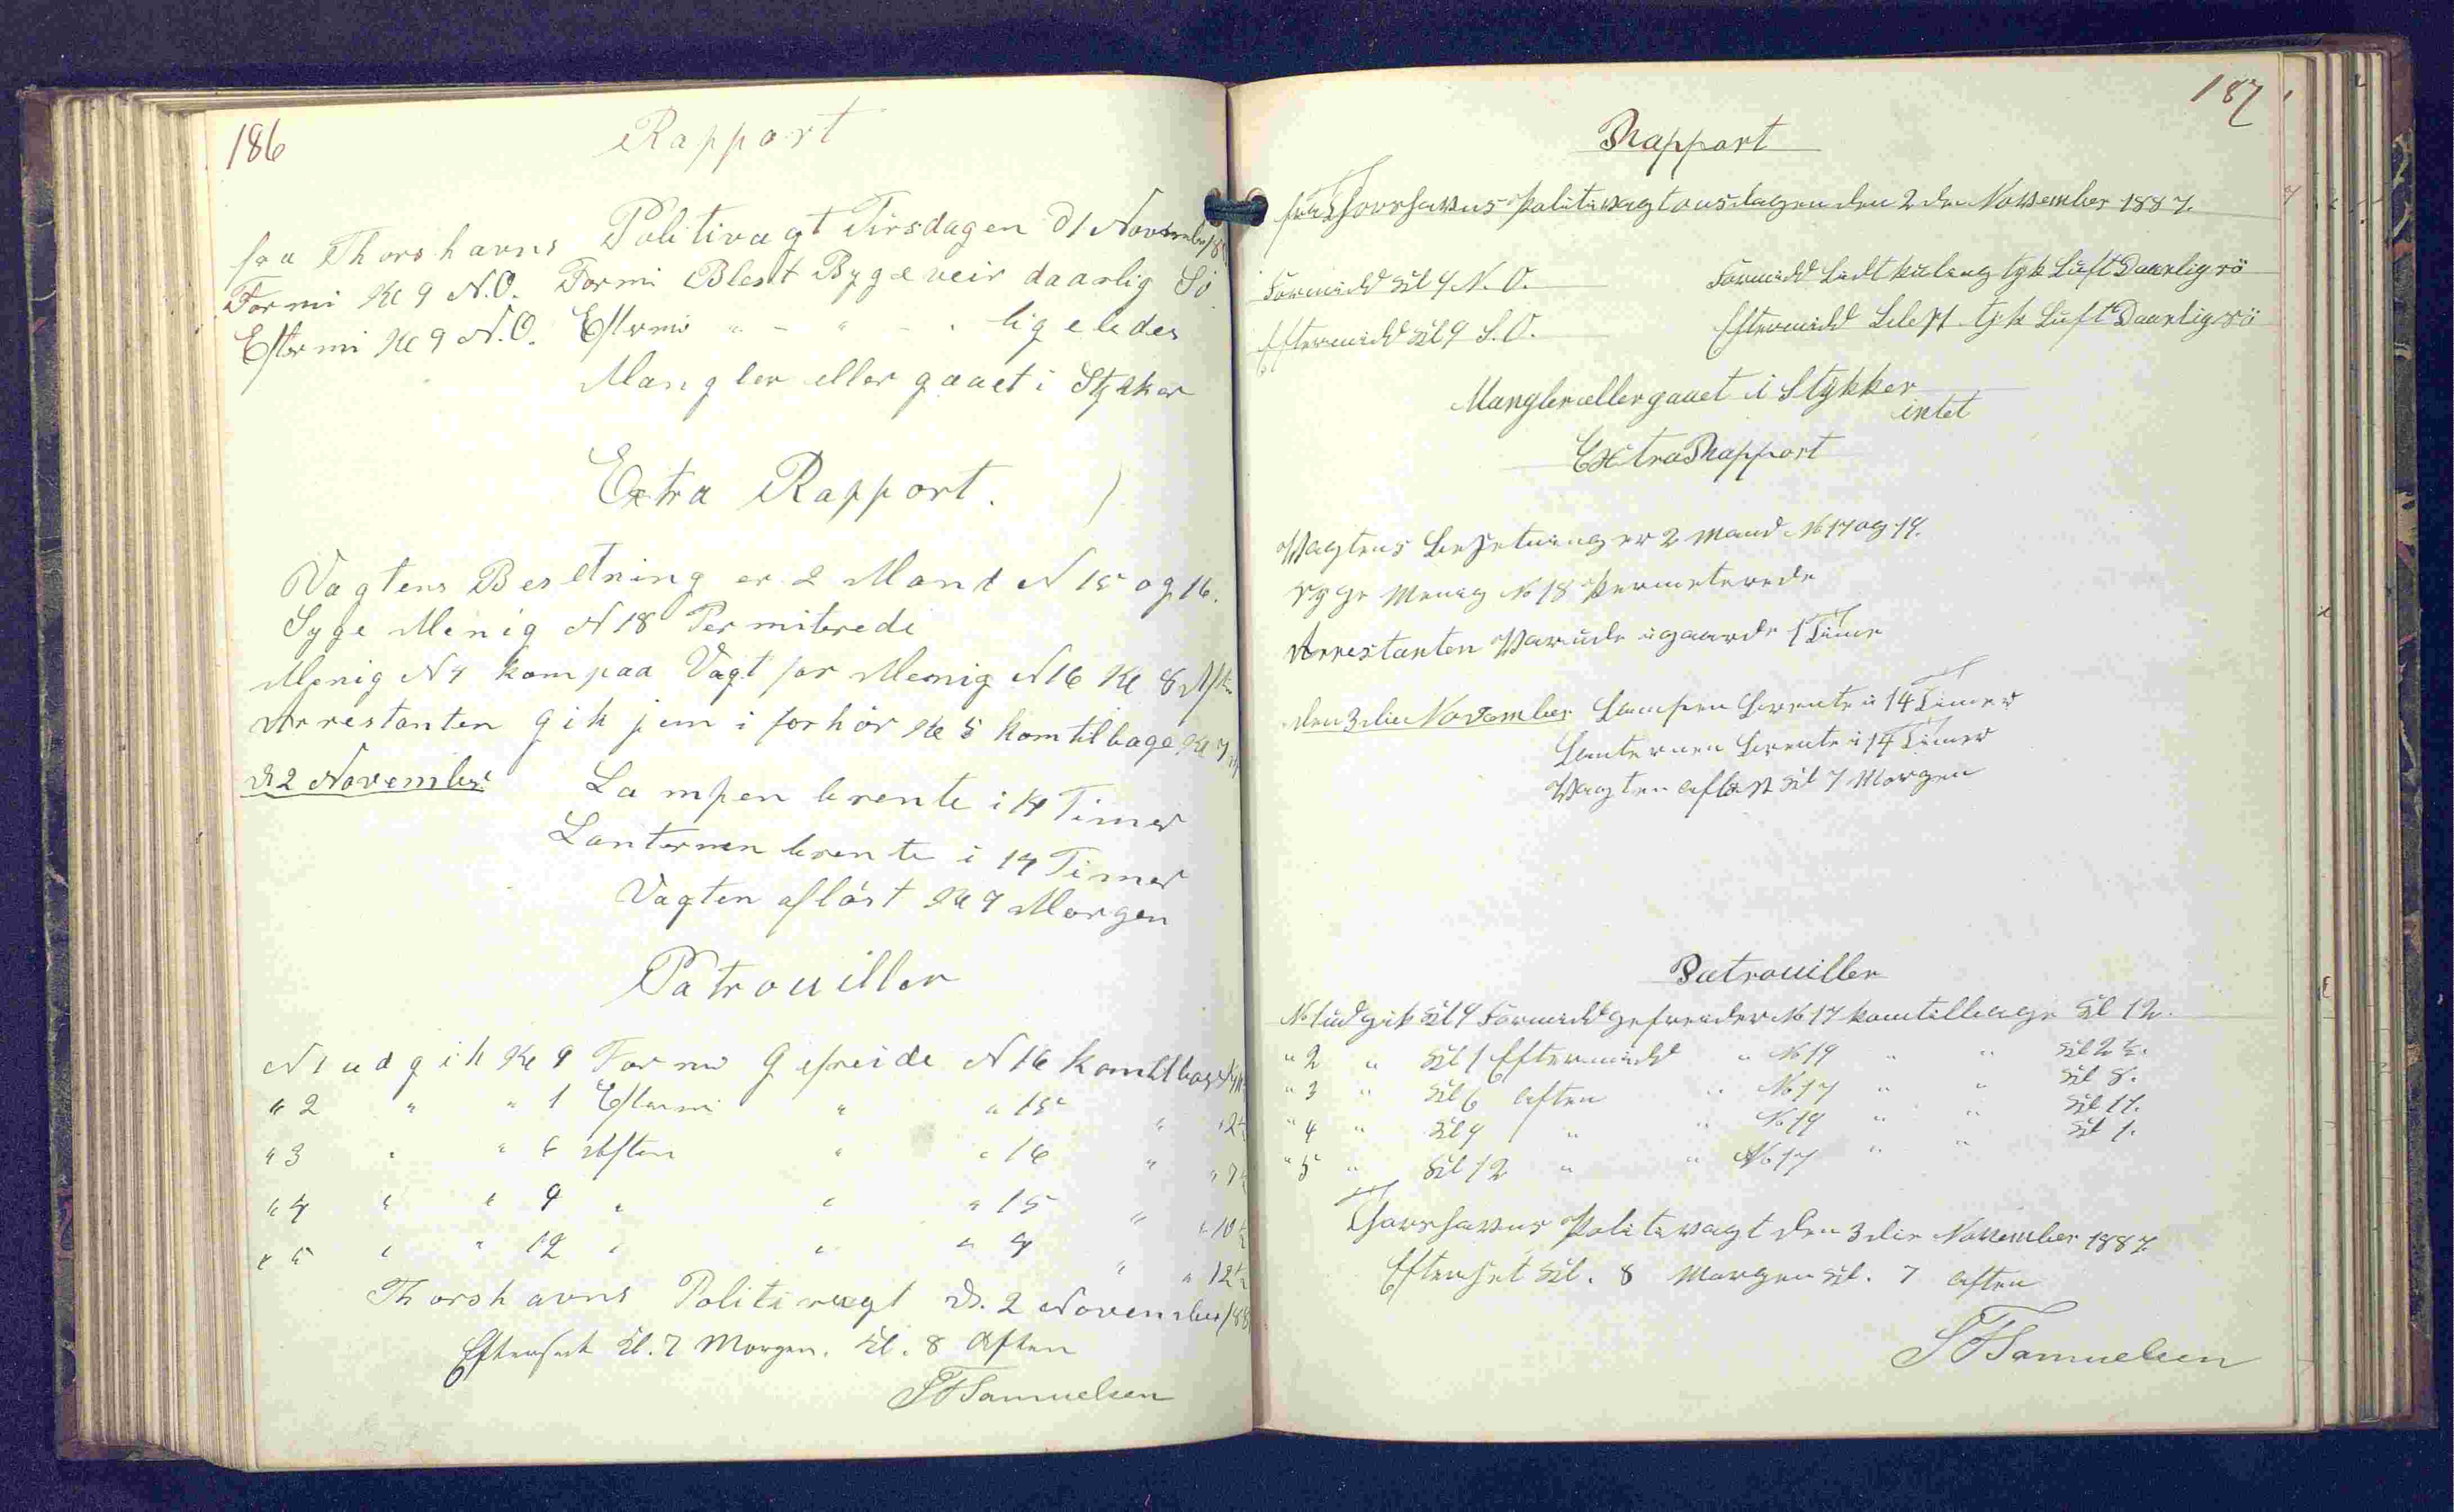 186
Rapport
fra Thorshavns Politivagt Tirsdagen d 1 November 18
Formi Kl 9 N.O. Formi Blest Bygeveir daarlig Sö
Eftermi Kl 9 N.O. Eftermi " - " - ligeledes
Mangler eller gaaet i Stykker
Extra Rapport.
Vagtens Besetning er 2 Mand N 15 og 16.
Syge Menig N 18 Permiterede
Menig N 4 kom paa Vagt for Menig N 16 Kl 8 Aften
Arrestanten gik jem i forhör Kl 5 kom tilbage Kl 7
d 2 November Lampen brente i 14 Timer
Lanternen brente i 14 Timer
Vagten aflöst Kl 7 Morgen
Patrouiller
N 1 udgik Kl 9 Formi Gefreide N 16 kom tilbage
" 2 " " 1 Eftermi " " 15 " " 2½
" 3 " " 6 Aften " " 16 " " 7½
" 4 " " 9 " " " 15 " " 10½
" 5 " " 12 " " " 4 " " 12½
Thorshavns Politivagt d. 2 November 188
Efterset Kl. 7 Morgen. Kl. 8 Aften
SFSamuelsen
187
Rapport
fra Thorshavns Politivagt onsdagen den 2den November 1887.
Formidd Kl 9 N.O. Formidd Lidt kuling tyk Luft Daarlig sö
Eftermidd Kl 9 S.O. Eftermidd Blest tyk Luft Daarlig sö
Mangler eller gaaet i Stykker
intet
Extra Rapport
Vagtens besetning er 2 Mand No 17 og 19.
Syge Menig No 18 Permeterede
Arrestanten Var ude i gaarde 1 Time
den 3die November Lampen brente i 14 Timer
Lanternen brente i 14 Timer
Vagten aflöst Kl 7 Morgen
Patrouiller
No 1 udgik Kl 9 Formidd gefreider No 17 kom tilbage Kl 12.
" 2 " Kl 1 Eftermidd " No 19 " " Kl 2½.
" 3 " Kl 6 Aften " No 17 " " Kl 8.
" 4 " Kl 9 " " No 19 " " Kl 11.
" 5 " Kl 12 " " No 17 " " Kl 1.
Thorshavns Politivagt den 3die November 1887
Efterset Kl. 8 Morgen Kl. 7 Aften
SFSamuelsen